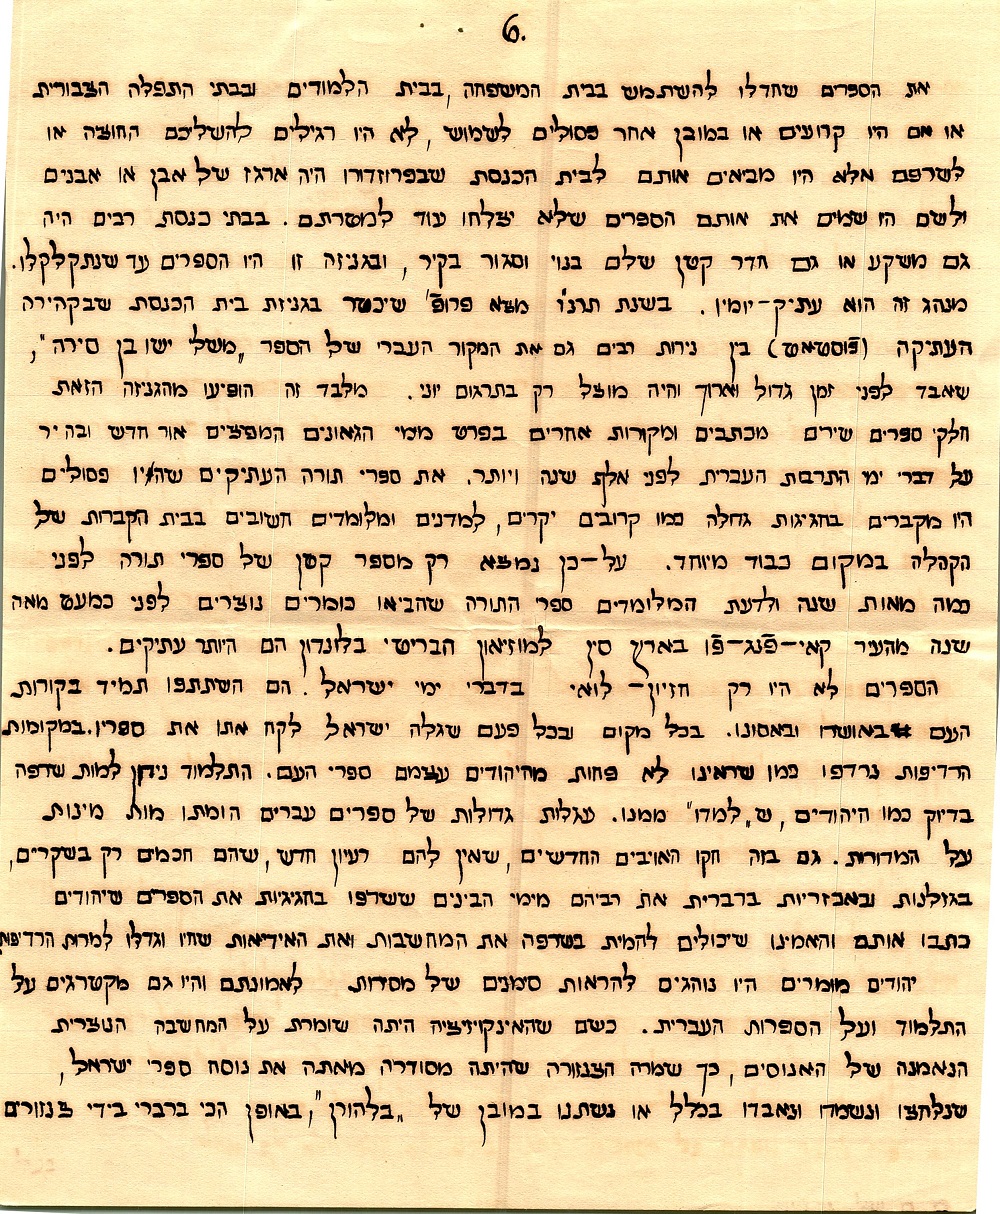 6.
את הספרים שחדלו להשתמש בבית המשפחה, בבית הלמודים ובבתי התפלה הצבורית
או אם היו קרועים או במובן אחר פסולים לשמוש, לא היו רגילים להשליכם החוצה או
לשרפם אלא היו מביאים אותם לבית הכנסת שבפרוזדורו היה ארגז של אבן או אבנים
ולשם היו שמים את אותם הספרים שלא יצלחו עוד למטרתם. בבתי כנסת רבים היה
גם משקע או גם חדר קטן שלם בנוי וסגור בקיר, ובגניזה זו היו הספרים עד שנתקלקלו.
מנהג זה הוא עתיק-יומין. בשנת תרנ"ו מצא פרופ' שיכטר בגניזת בית הכנסת שבקהירה
העתיקה (פוסטאט) בין נירות רבים גם את המקור העברי של הספר „משלי ישו בן סירה",
שאבד לפני זמן גדול וארוך והיה מוצל רק בתרגום יוני. מלבד זה הופיעו מהגניזה הזאת
חלקי ספרים שירים מכתבים ומקורות אחרים בפרט מימי הגאונים המפיצים אור חדש ובהיר
על דברי ימי התרבות העברית לפני אלף שנה ויותר. את ספרי תורה העתיקים שהיו פסולים
היו מקברים בחגיגות גדולה כמו קרובים יקרים, למדנים ומלומדים חשובים בבית הקברות של
הקהלה במקום כבוד מיוחד. על-כן נמצא רק מספר קטן של ספרי תורה לפני
כמה מאות שנה ולדעת המלומדים ספרי התורה שהביאו כומרים נוצרים לפני כמעט מאה
שנה מהעיר קאי-פנג-פו בארץ סין למוזיאון הבריטי בלונדון הם היותר עתיקים.
הספרים לא היו רק חזיון-לואי בדברי ימי ישראל. הם השתתפו תמיד בקורות
העם באושרו ובאסונו. בכל מקום ובכל פעם שגלה ישראל לקח אתו את ספריו. במקומות
הרדיפות נרדפו כמו שראינו לא פחות מהיהודים עצמם ספרי העם. התלמוד נידון למות שרפה
בדיוק כמו היהודים, ש„למדו" ממנו. עגלות גדולות של ספרים עברים הומתו מות מינות
על המדורות. גם בזה חקו האויבים החדשים, שאין להם רעיון חדש, שהם חכמים רק בשקרים,
בגזלנות ובאכזריות ברברית את רביהם מימי הבינים ששרפו בחגיגיות את הספרים שיהודים
כתבו אותם והאמינו שיכולים להמית בשרפה את המחשבות ואת האידיאות שחיו וגדלו למרות הרדיפות
יהודים מומרים היו נוהגים להראות סימנים של מסירות לאמונתם והיו גם מקטרגים על
התלמוד ועל הספרות העברית. כשם שהאינקויזיציה היתה שומרת על המחשבה הנוצרית
הנאמנה של האנוסים, כך שמרה הצנזורה שהיתה מסודרה מאתה את נוסח ספרי ישראל,
שנלחצו ונשמדו ונאבדו בכלל או נשתנו במובן של „בלהורן", באופן הכי ברברי בידי צנזורים